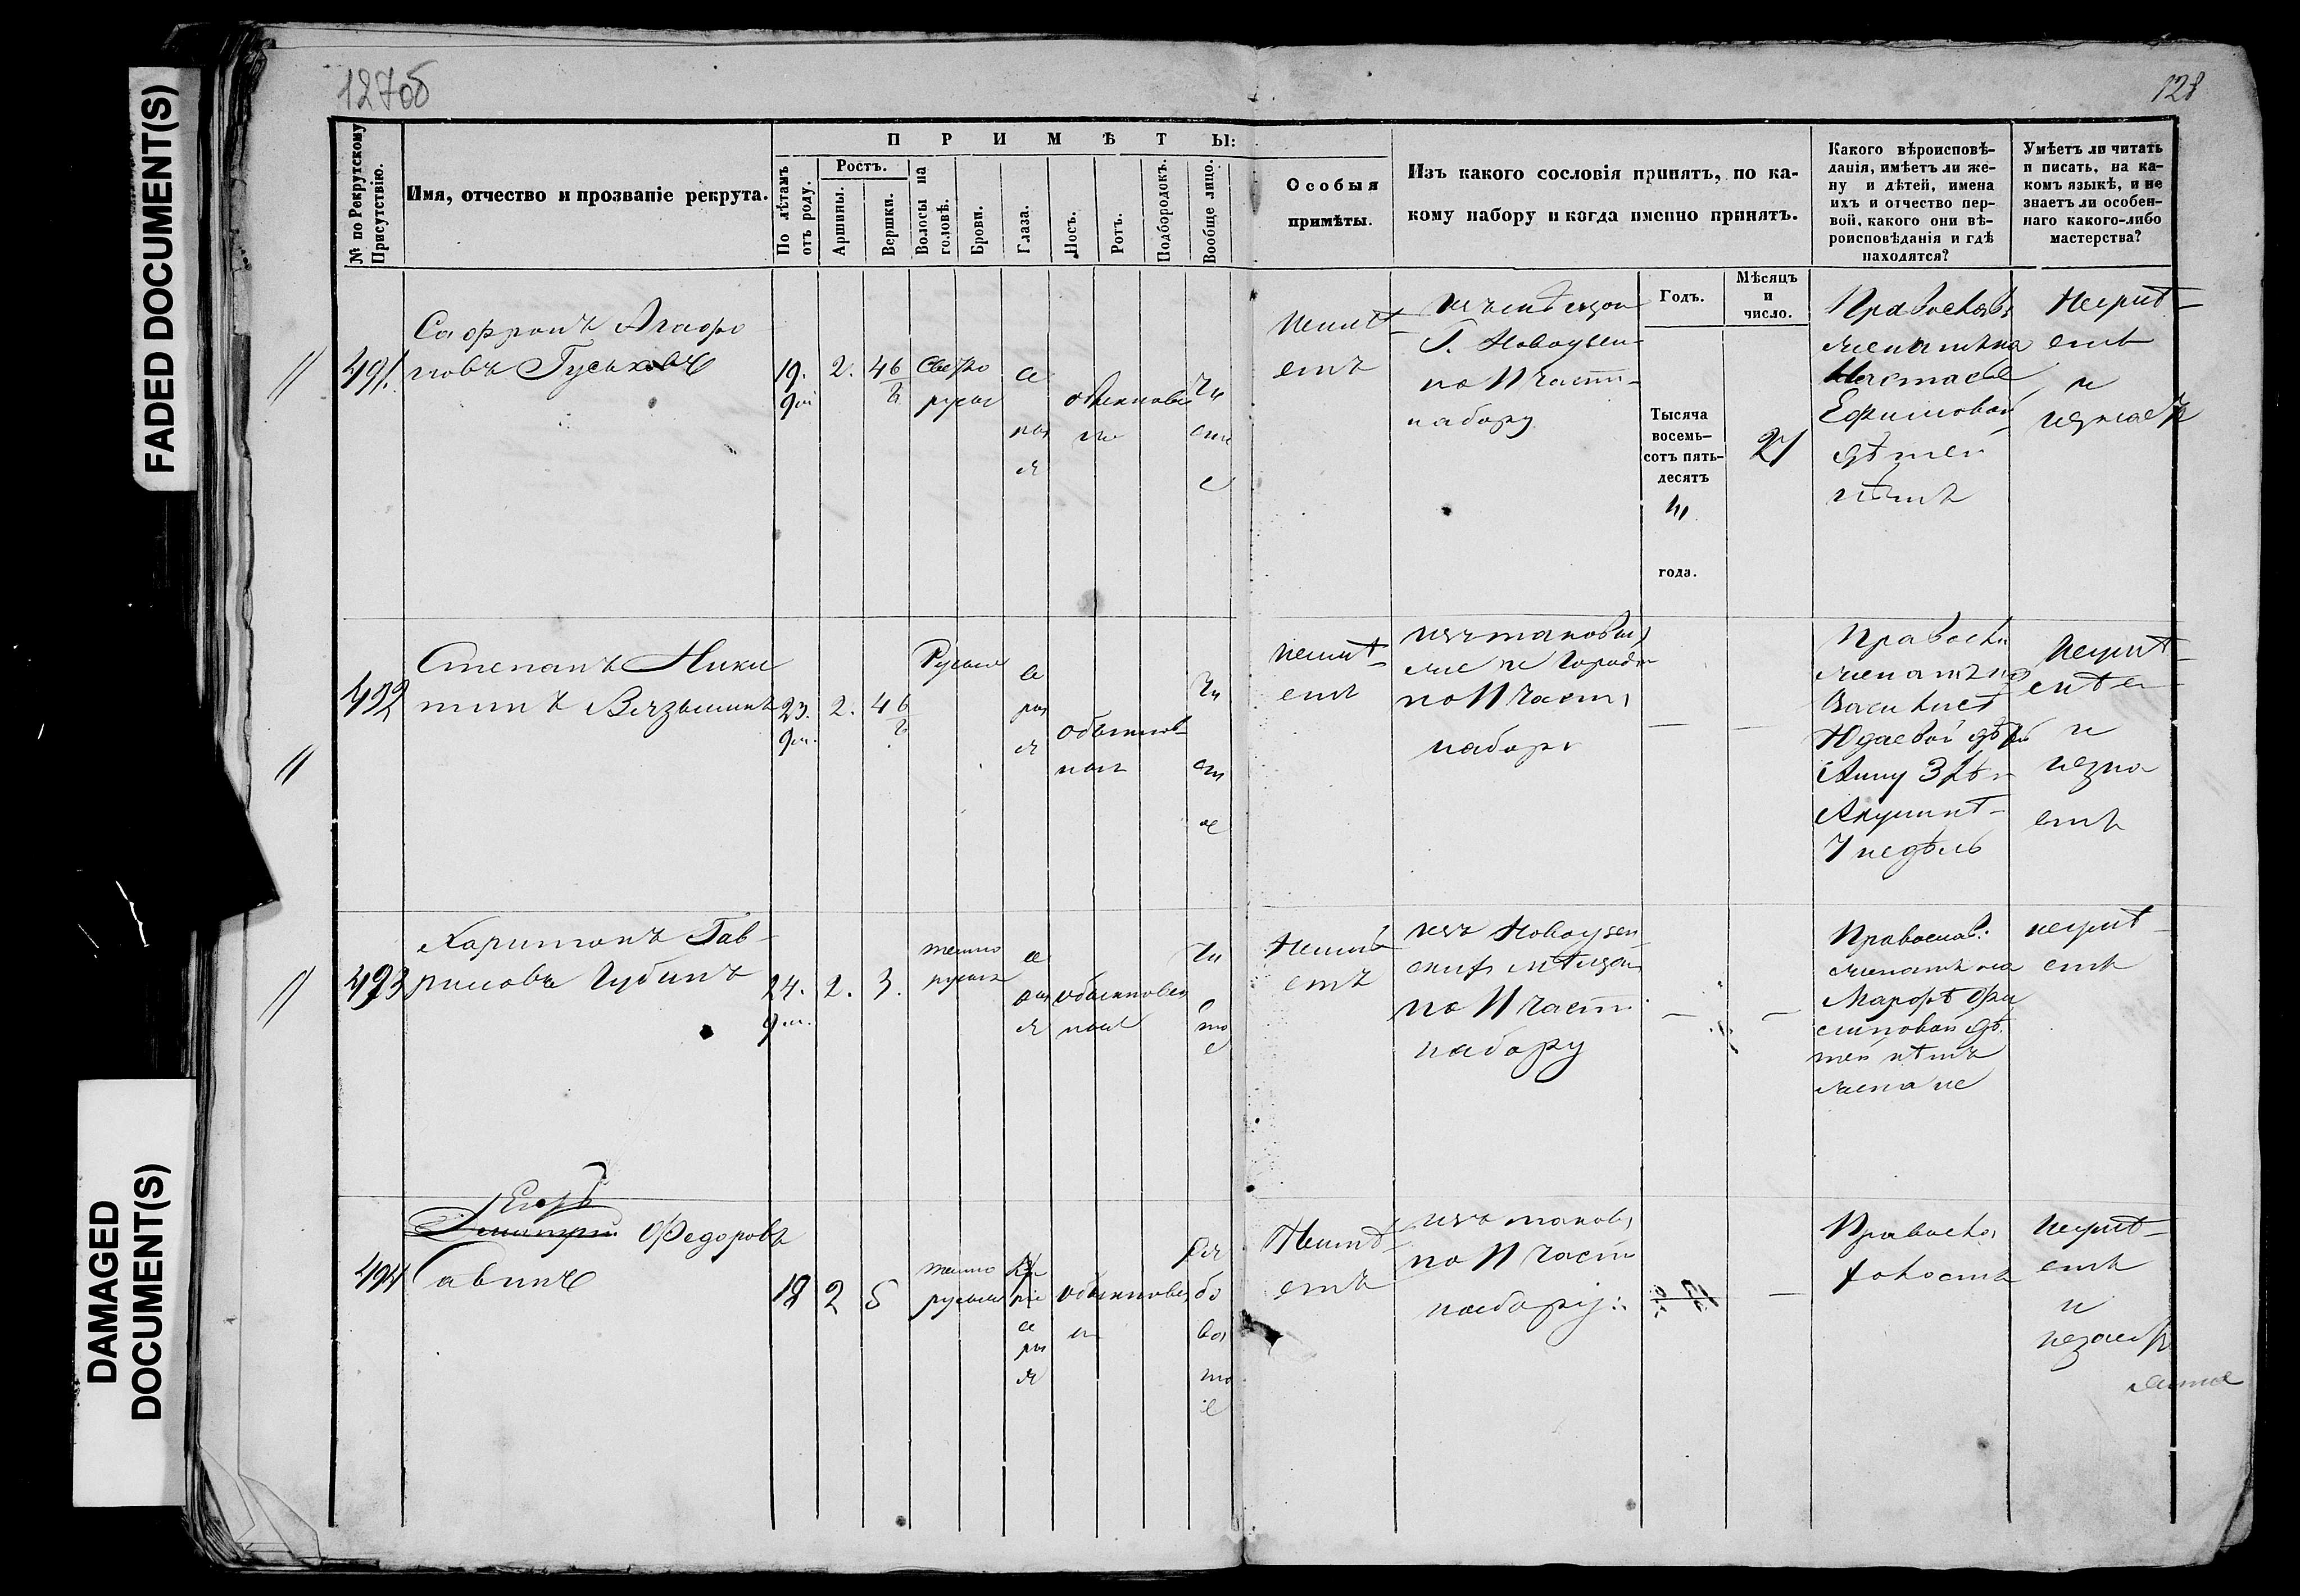 FADED DOCUMENT(S)
DAMAGED
DOCUMENT(S)
127об
128
№ по Рекрутскому
Присутствію.
Имя, отчество и прозваніе рекрута.
П Р И М Ѣ Т Ы:
По лѣтамъ
отъ роду.
Ростъ.
Аршины.
Вершки.
Волосы на
головѣ.
Брови.
Глаза.
Носъ.
Ротъ.
Подбородокъ.
Вообще лицо.
Особыя
примѣты.
Изъ какого сословія принятъ, по ка-
кому набору и когда именно принятъ.
Какого вѣроисповѣ-
данія, имѣетъ ли же-
ну и дѣтей, имена
ихъ и отчество пер-
вой, какого они вѣ-
роисповѣданія и гдѣ
находятся?
Умѣетъ ли читать
и писать, на ка-
комъ языкѣ, и не
знаетъ ли особен-
наго какого-либо
мастерства?
Годъ.
Мѣсяцъ
и
число.
491.
Сафронъ Агафо
новъ Гуськовъ
19.
2.
4 6/8
Свѣтло
русые
се
рые
обыкновен
ные
чи
стое
Неимѣ
етъ
изъ мѣщан
Г. Новоузен
по II части
набору
Тысяча
восемь-
сотъ пять-
десятъ
года.
21
Православ
женатъ на
Настасье
Ефимовой
дѣтей
нѣтъ
Неумѣ
етъ
и
незнаетъ
492
Степанъ Ники
тинъ Вязьминъ
23.
2.
4 6/8
Русые
се
рые
обыкнов
ные
чи
сто
е
неимѣ
етъ
изъ таковы
же
по II части
набору
Правосл
женатъ на
Василисѣ
Юдаевой
Анну 3 лѣт
Акулинѣ
7 недѣль
Неумѣ
етъ
и
незна
етъ
493
Харитонъ Гав
риловъ Губинъ
24.
2.
3.
темно
русые
се
рые
обыкновен
ные
чи
сто
е
Неимѣ
етъ
изъ Новоузен
скихъ мѣщан
по II части
набору
Православ:
женатъ на
Марфѣ Фи
липовой дѣ
тей нѣтъ
неумѣ
етъ
494
Егоръ
Дмитрій Федоровъ
Савинъ
18
2
5
темно
русые
се
рые
обыкновен
Неимѣ
етъ
изъ таков
по II части
набору:
Правосла
холостъ
Неумѣ
етъ
и
незнаетъ